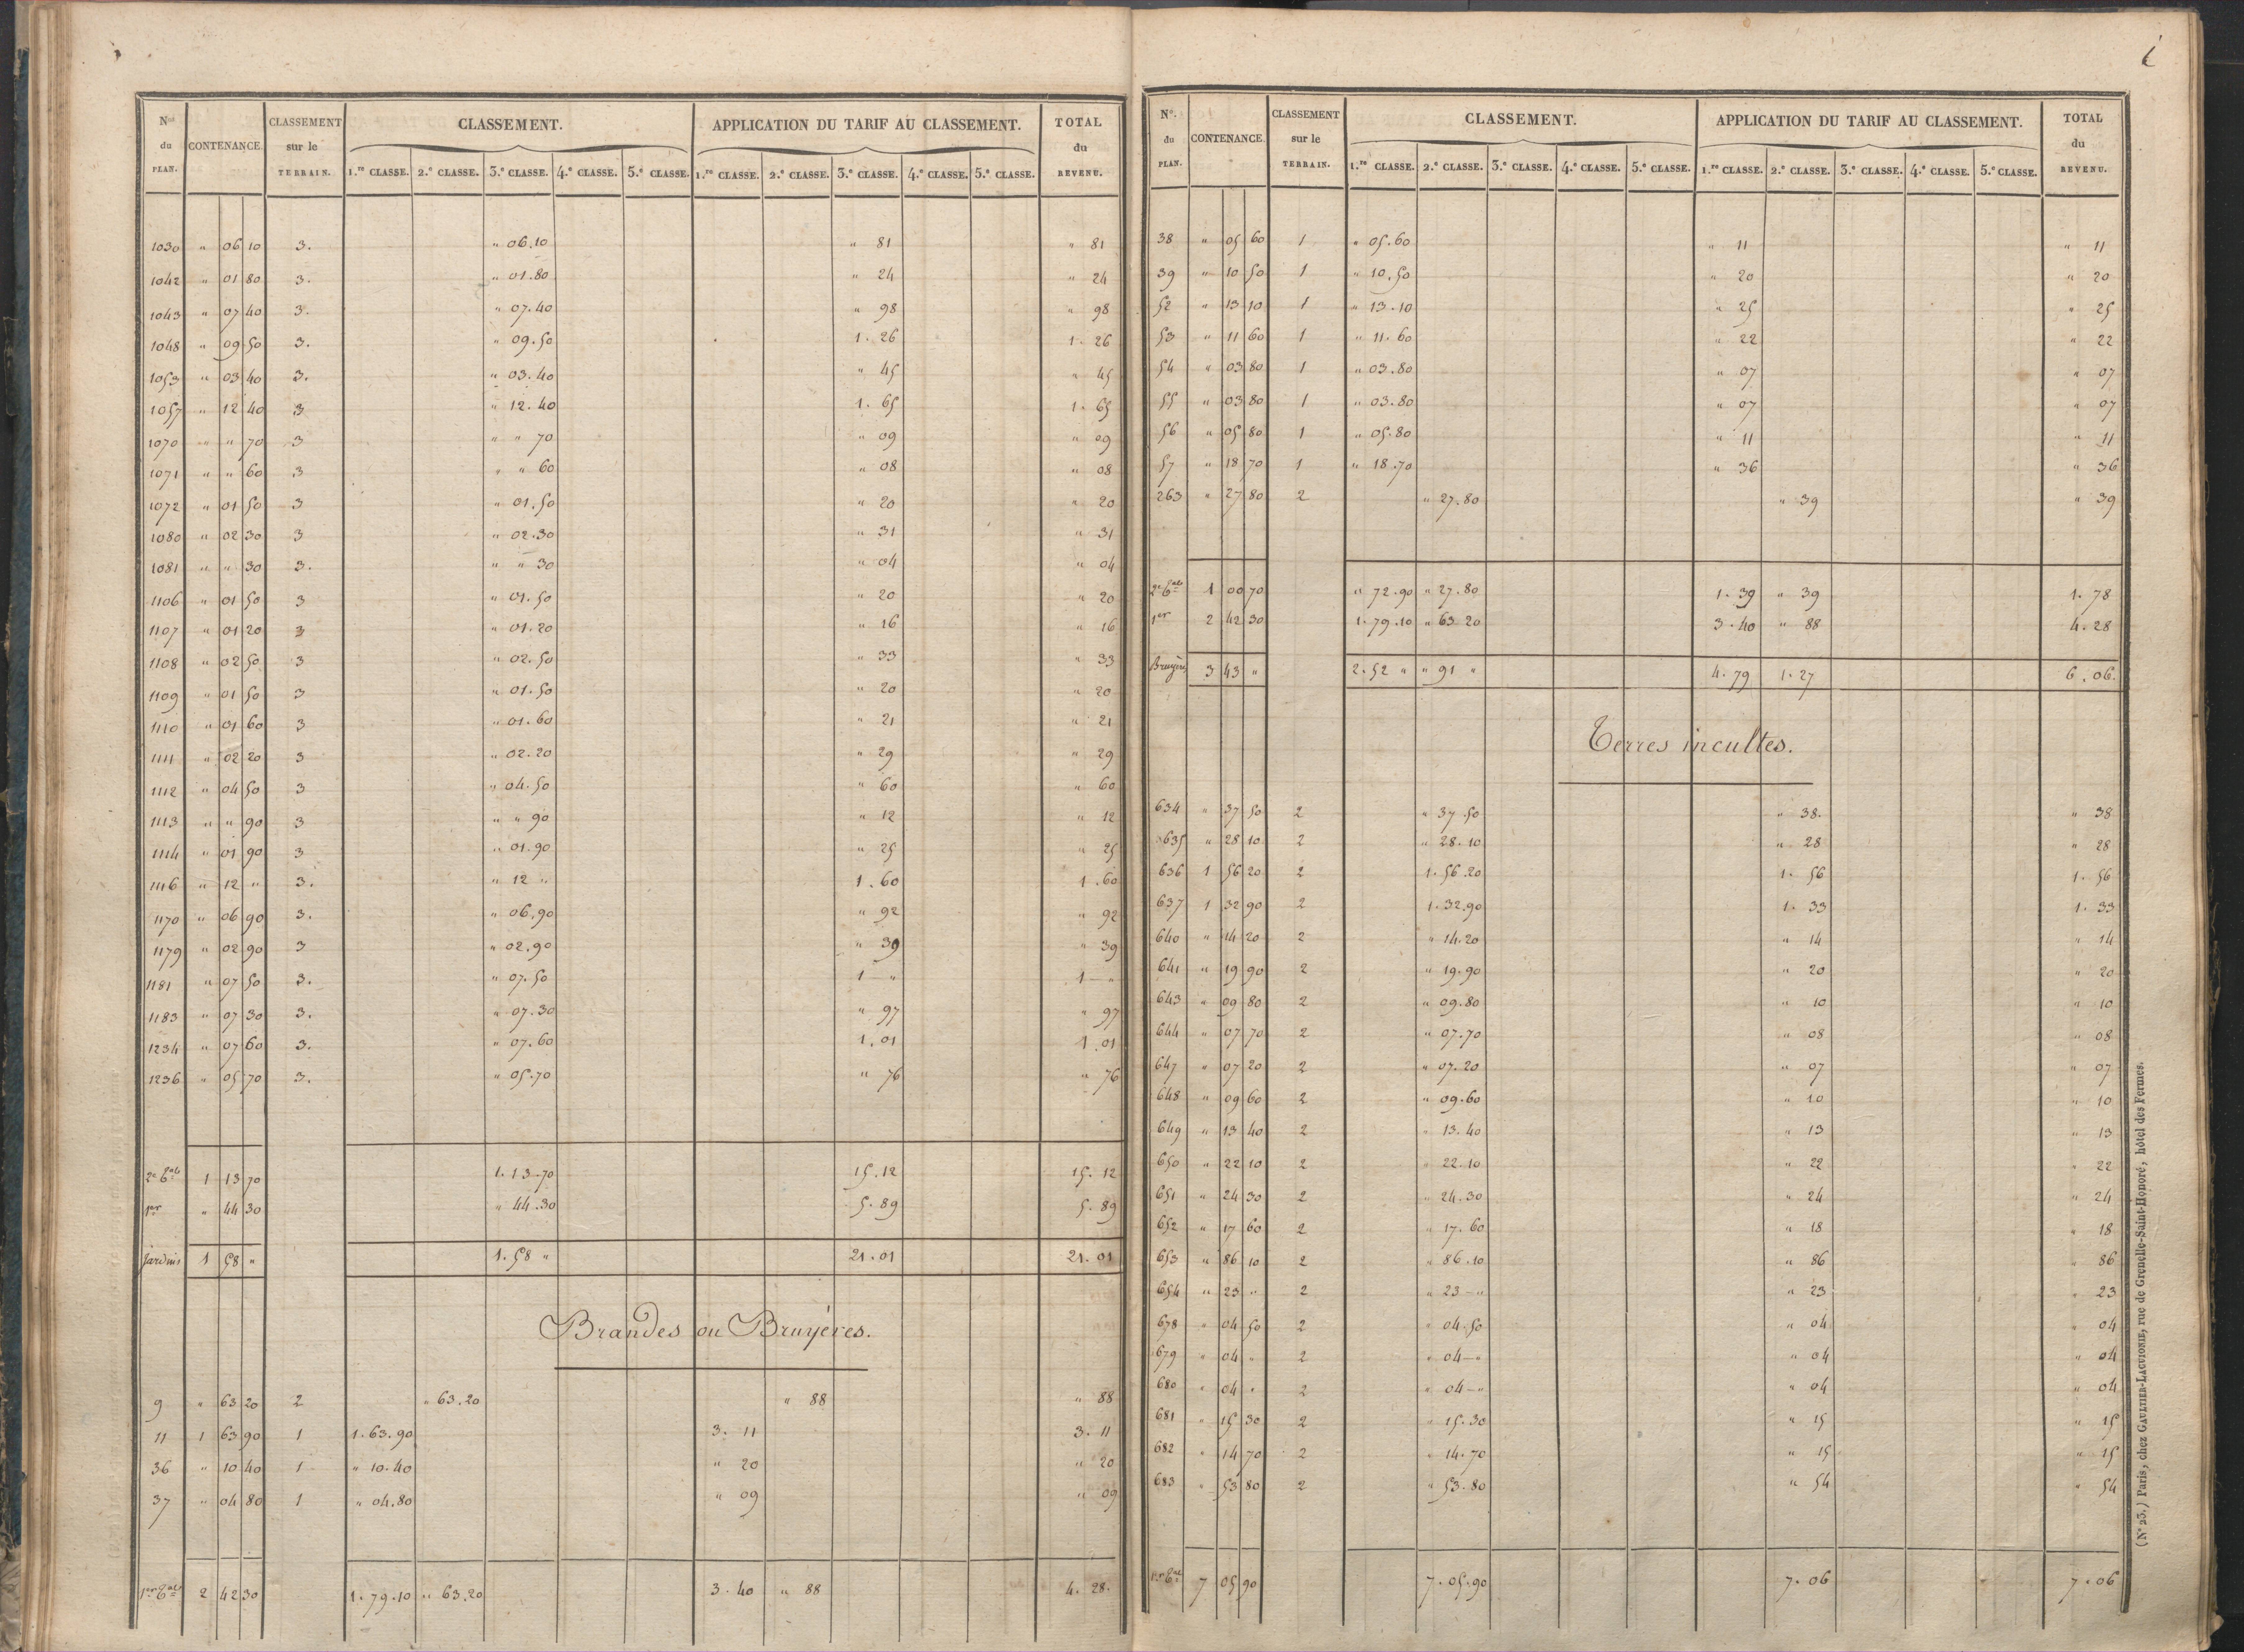 N.os du PLAN. CONTENANCE. CLASSEMENT sur le TERRAIN. CLASSEMENT. APPLICATION DU TARIF AU CLASSEMENT. TOTAL du REVENU.
1.re CLASSE. 2.e CLASSE. 3.e CLASSE. 4.e CLASSE. 5.e CLASSE. 1.re CLASSE. 2.e CLASSE. 3.e CLASSE. 4.e CLASSE. 5.e CLASSE.
1030 " 06 10 3. " 06.10 " 81 " 81
1042 " 01 80 3. " 01.80 " 24 " 24
1043 " 07 40 3. " 07.40 " 98 " 98
1048 " 09 50 3. " 09.50 1. 26 1. 26
1053 " 03 40 3. " 03.40 " 45 " 45
1057 " 12 40 3 " 12.40 1. 65 1. 65
1070 " " 70 3 " " 70 " 09 " 09
1071 " " 60 3 " " 60 " 08 " 08
1072 " 01 50 3 " 01.50 " 20 " 20
1080 " 02 30 3 " 02.30 " 31 " 31
1081 " " 30 3. " " 30 " 04 " 04
1106 " 01 50 3 " 01.50 " 20 " 20
1107 " 01 20 3 " 01.20 " 16 " 16
1108 " 02 50 3 " 02.50 " 33 " 33
1109 " 01 50 3 " 01.50 " 20 " 20
1110 " 01 60 3 " 01.60 " 21 " 21
1111 " 02 20 3 " 02.20 " 29 " 29
1112 " 04 50 3 " 04.50 " 60 " 60
1113 " " 90 3 " " 90 " 12 " 12
1114 " 01 90 3 " 01.90 " 25 " 25
1116 " 12 " 3. " 12 " 1.60 1.60
1170 " 06 90 3. " 06.90 " 92 " 92
1179 " 02 90 3 " 02.90 " 39 " 39
1181 " 07 50 3. " 07.50 1 — " 1 — "
1183 " 07 30 3. " 07.30 " 97 " 97
1234 " 07 60 3. " 07.60 1.01 1.01
1236 " 05 70 3. " 05.70 " 76 " 76
2e Tal 1 13 70 1.13.70 15.12 15.12
1er " 44 30 " 44.30 5.89 5.89
Jardins 1 58 " 1.58 " 21.01 21.01
Brandes ou Bruyères.
9 " 63 20 2 " 63.20 " 88 " 88
11 1 63 90 1 1.63.90 3. 11 3. 11
36 " 10 40 1 " 10.40 " 20 " 20
37 " 04 80 1 " 04.80 " 09 " 09
1er Tal 2 42 30 1.79.10 " 63.20 3.40 " 88 4.28.
N.os du PLAN. CONTENANCE. CLASSEMENT sur le TERRAIN. CLASSEMENT. APPLICATION DU TARIF AU CLASSEMENT. TOTAL du REVENU.
1.re CLASSE. 2.e CLASSE. 3.e CLASSE. 4.e CLASSE. 5.e CLASSE. 1.re CLASSE. 2.e CLASSE. 3.e CLASSE. 4.e CLASSE. 5.e CLASSE.
38 " 05 60 1 " 05.60 " 11 " 11
39 " 10 50 1 " 10.50 " 20 " 20
52 " 13 10 1 " 13.10 " 25 " 25
53 " 11 60 1 " 11.60 " 22 " 22
54 " 03 80 1 " 03.80 " 07 " 07
55 " 03 80 1 " 03.80 " 07 " 07
56 " 05 80 1 " 05.80 " 11 " 11
57 " 18 70 1 " 18.70 " 36 " 36
263 " 27 80 2 " 27.80 " 39 " 39
2e Tal 1 00 70 " 72.90 " 27.80 1.39 " 39 1.78
1er 2 42 30 1.79.10 " 63 20 3.40 " 88 4.28
Bruyères 3 43 " 2.52 " " 91 " 4.79 1.27 6.06.
Terres incultes.
634 " 37 50 2 " 37.50 " 38. " 38
635 " 28 10 2 " 28.10 " 28 " 28
636 1 56 20 2 1.56.20 1. 56 1. 56
637 1 32 90 2 1.32.90 1. 33 1. 33
640 " 14 20 2 " 14.20 " 14 " 14
641 " 19 90 2 " 19.90 " 20 " 20
643 " 09 80 2 " 09.80 " 10 " 10
644 " 07 70 2 " 07.70 " 08 " 08
647 " 07 20 2 " 07.20 " 07 " 07
648 " 09 60 2 " 09.60 " 10 " 10
649 " 13 40 2 " 13.40 " 13 " 13
650 " 22 10 2 " 22.10 " 22 " 22
651 " 24 30 2 " 24.30 " 24 " 24
652 " 17 60 2 " 17.60 " 18 " 18
653 " 86 10 2 " 86.10 " 86 " 86
654 " 23 " 2 " 23 — " " 23 " 23
678 " 04 50 2 " 04.50 " 04 " 04
679 " 04 " 2 " 04 — " " 04 " 04
680 " 04 " 2 " 04 — " " 04 " 04
681 " 15 30 2 " 15.30 " 15 " 15
682 " 14 70 2 " 14.70 " 15 " 15
683 " 53 80 2 " 53.80 " 54 " 54
1er Tal 7 05 90 7.05.90 7.06 7.06
(N° 23.) Paris, chez GAULTIER-LAGUIONIE, rue de Grenelle-Saint-Honoré, hôtel des Fermes.